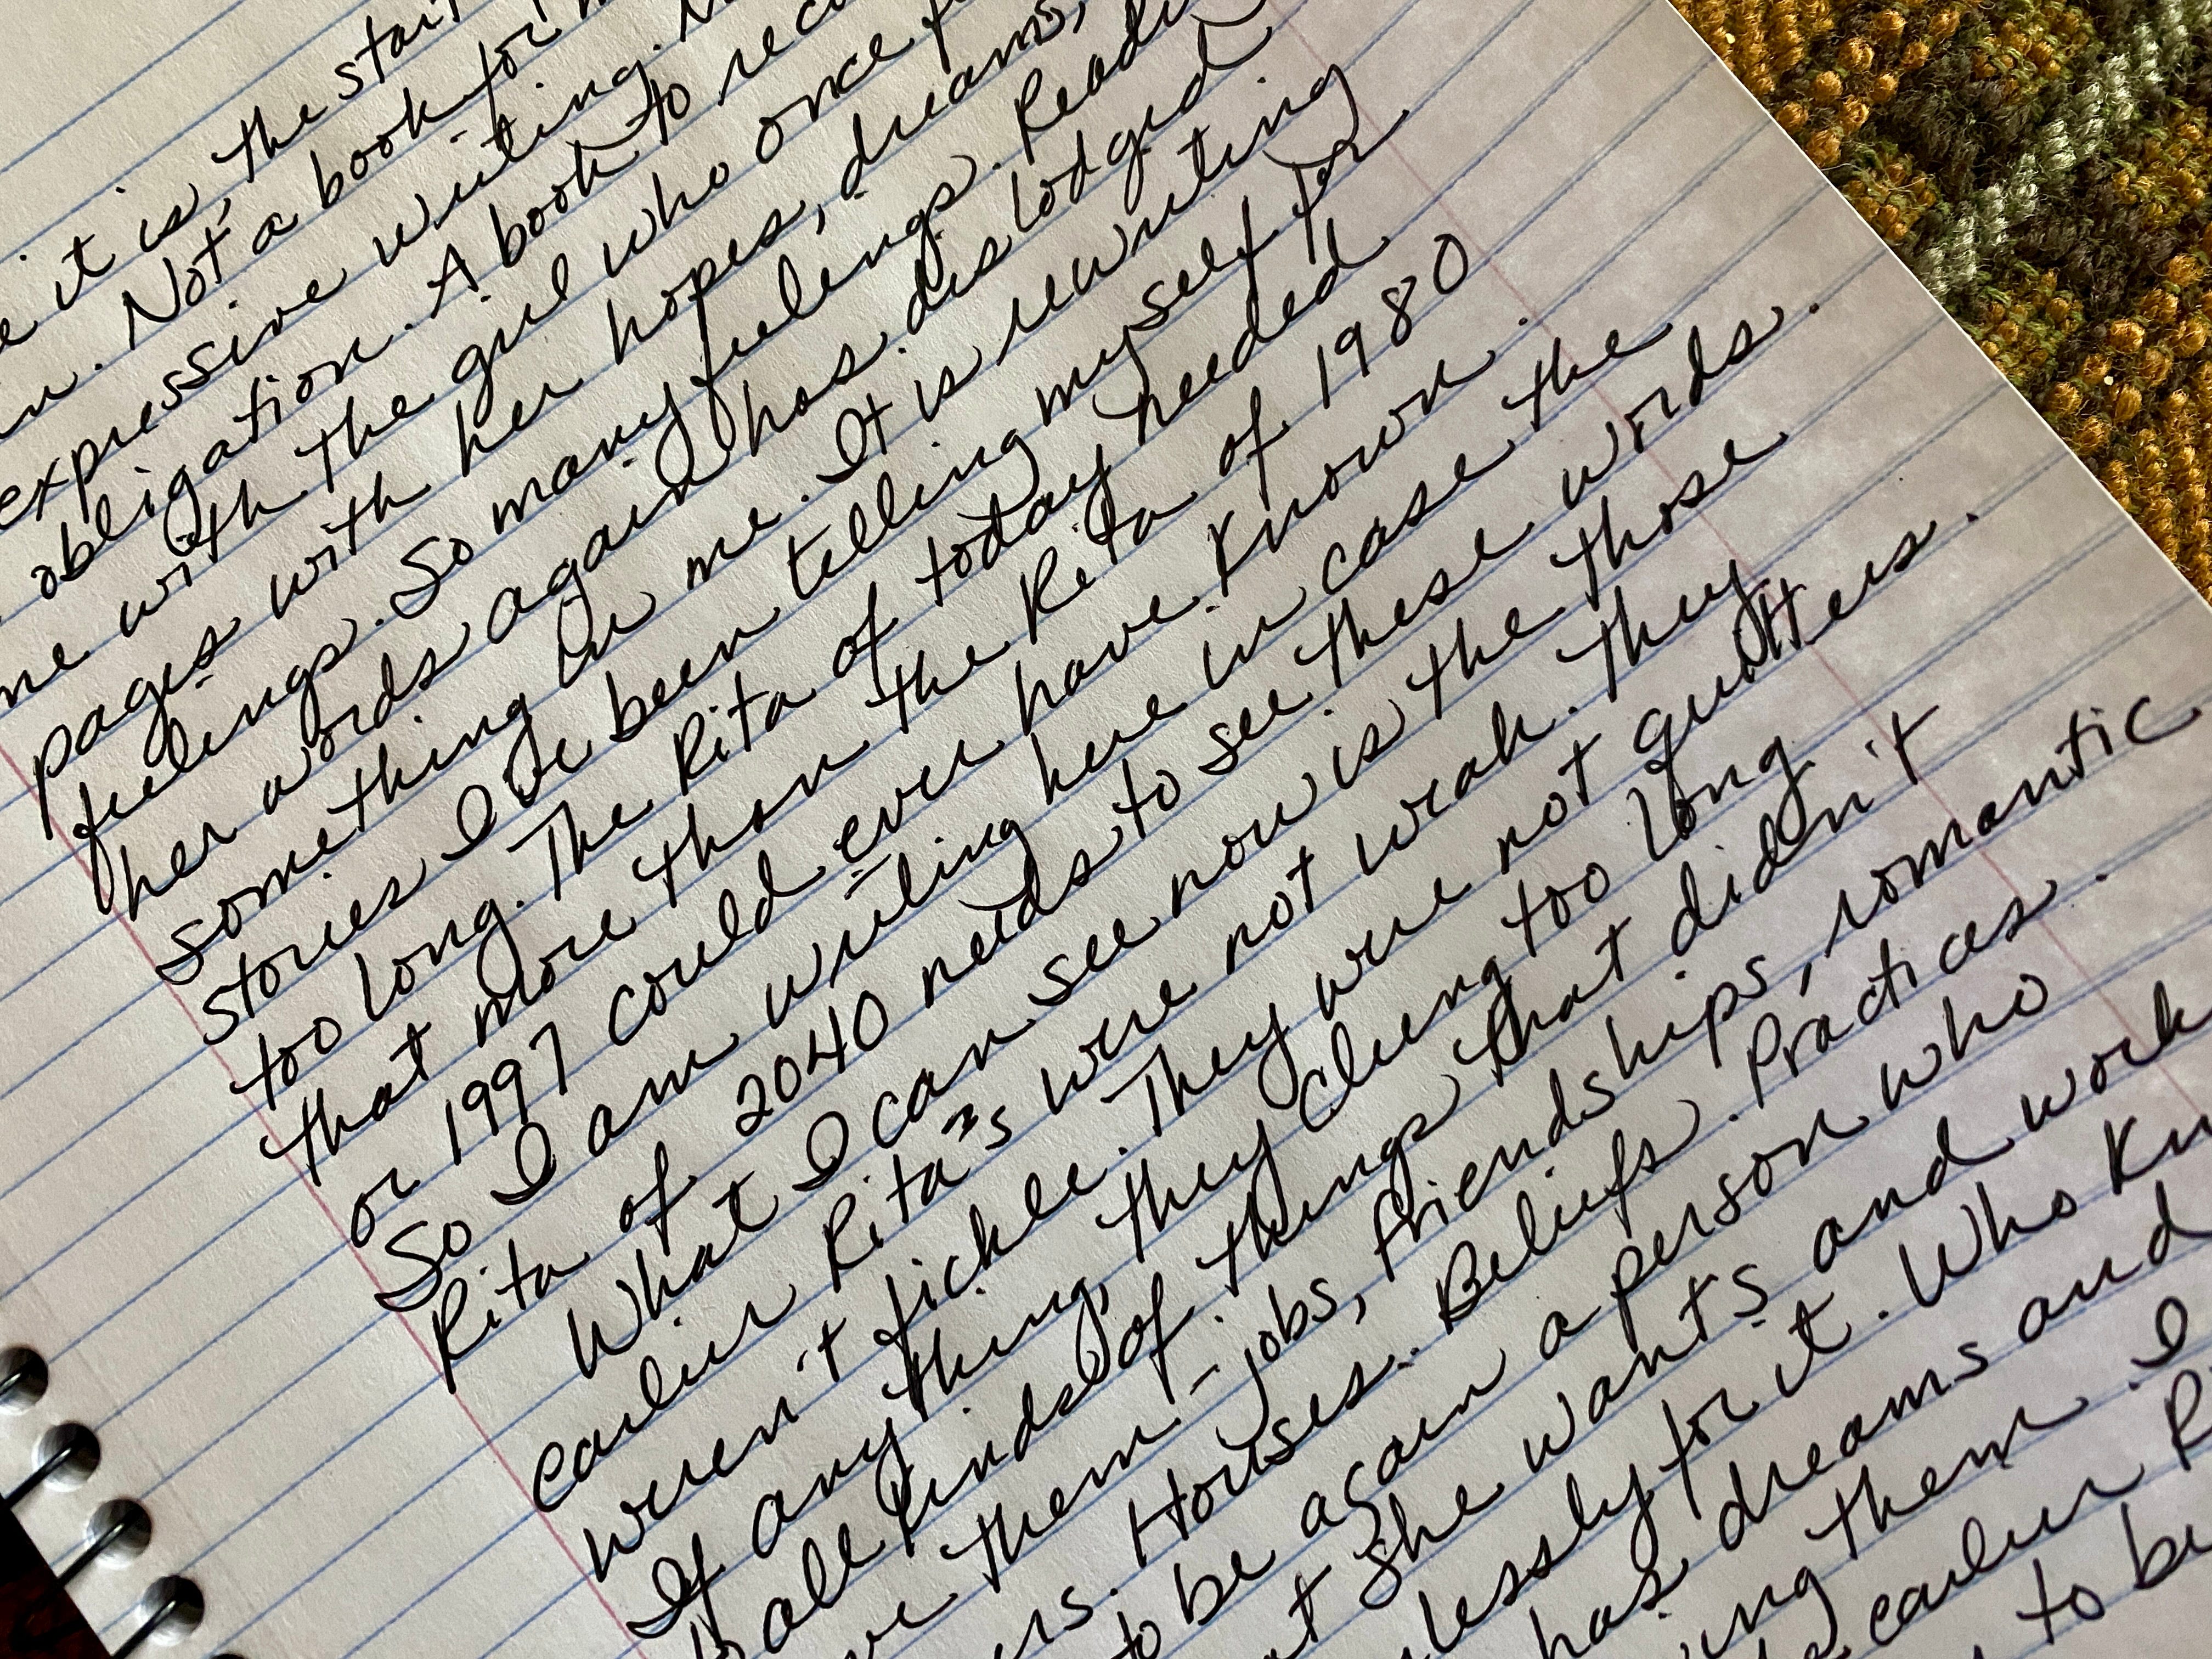 it is, the start
Not a book for
expressive writing.
obligation. A book to
me with the girl who once
pages with her hopes, dreams,
feelings. So many feelings.
her words again has dislodged
something in me. It is rewriting
stories I've been telling myself for
too long. The Rita of today needed
that more than the Rita of 1980
or 1997 could ever have known.
So I am writing here in case the
Rita of 2040 needs to see these words.
What I can see now is the those
earlier Rita's were not weak. They
weren't fickle. They were not quitters.
If anything, they clung too long
to all kinds of things that didn't
them - jobs, friendships, romantic
Houses. Beliefs. Practices.
to be again a person who
she wants and work
for it. Who
has dreams and
them. I
earlier
to be